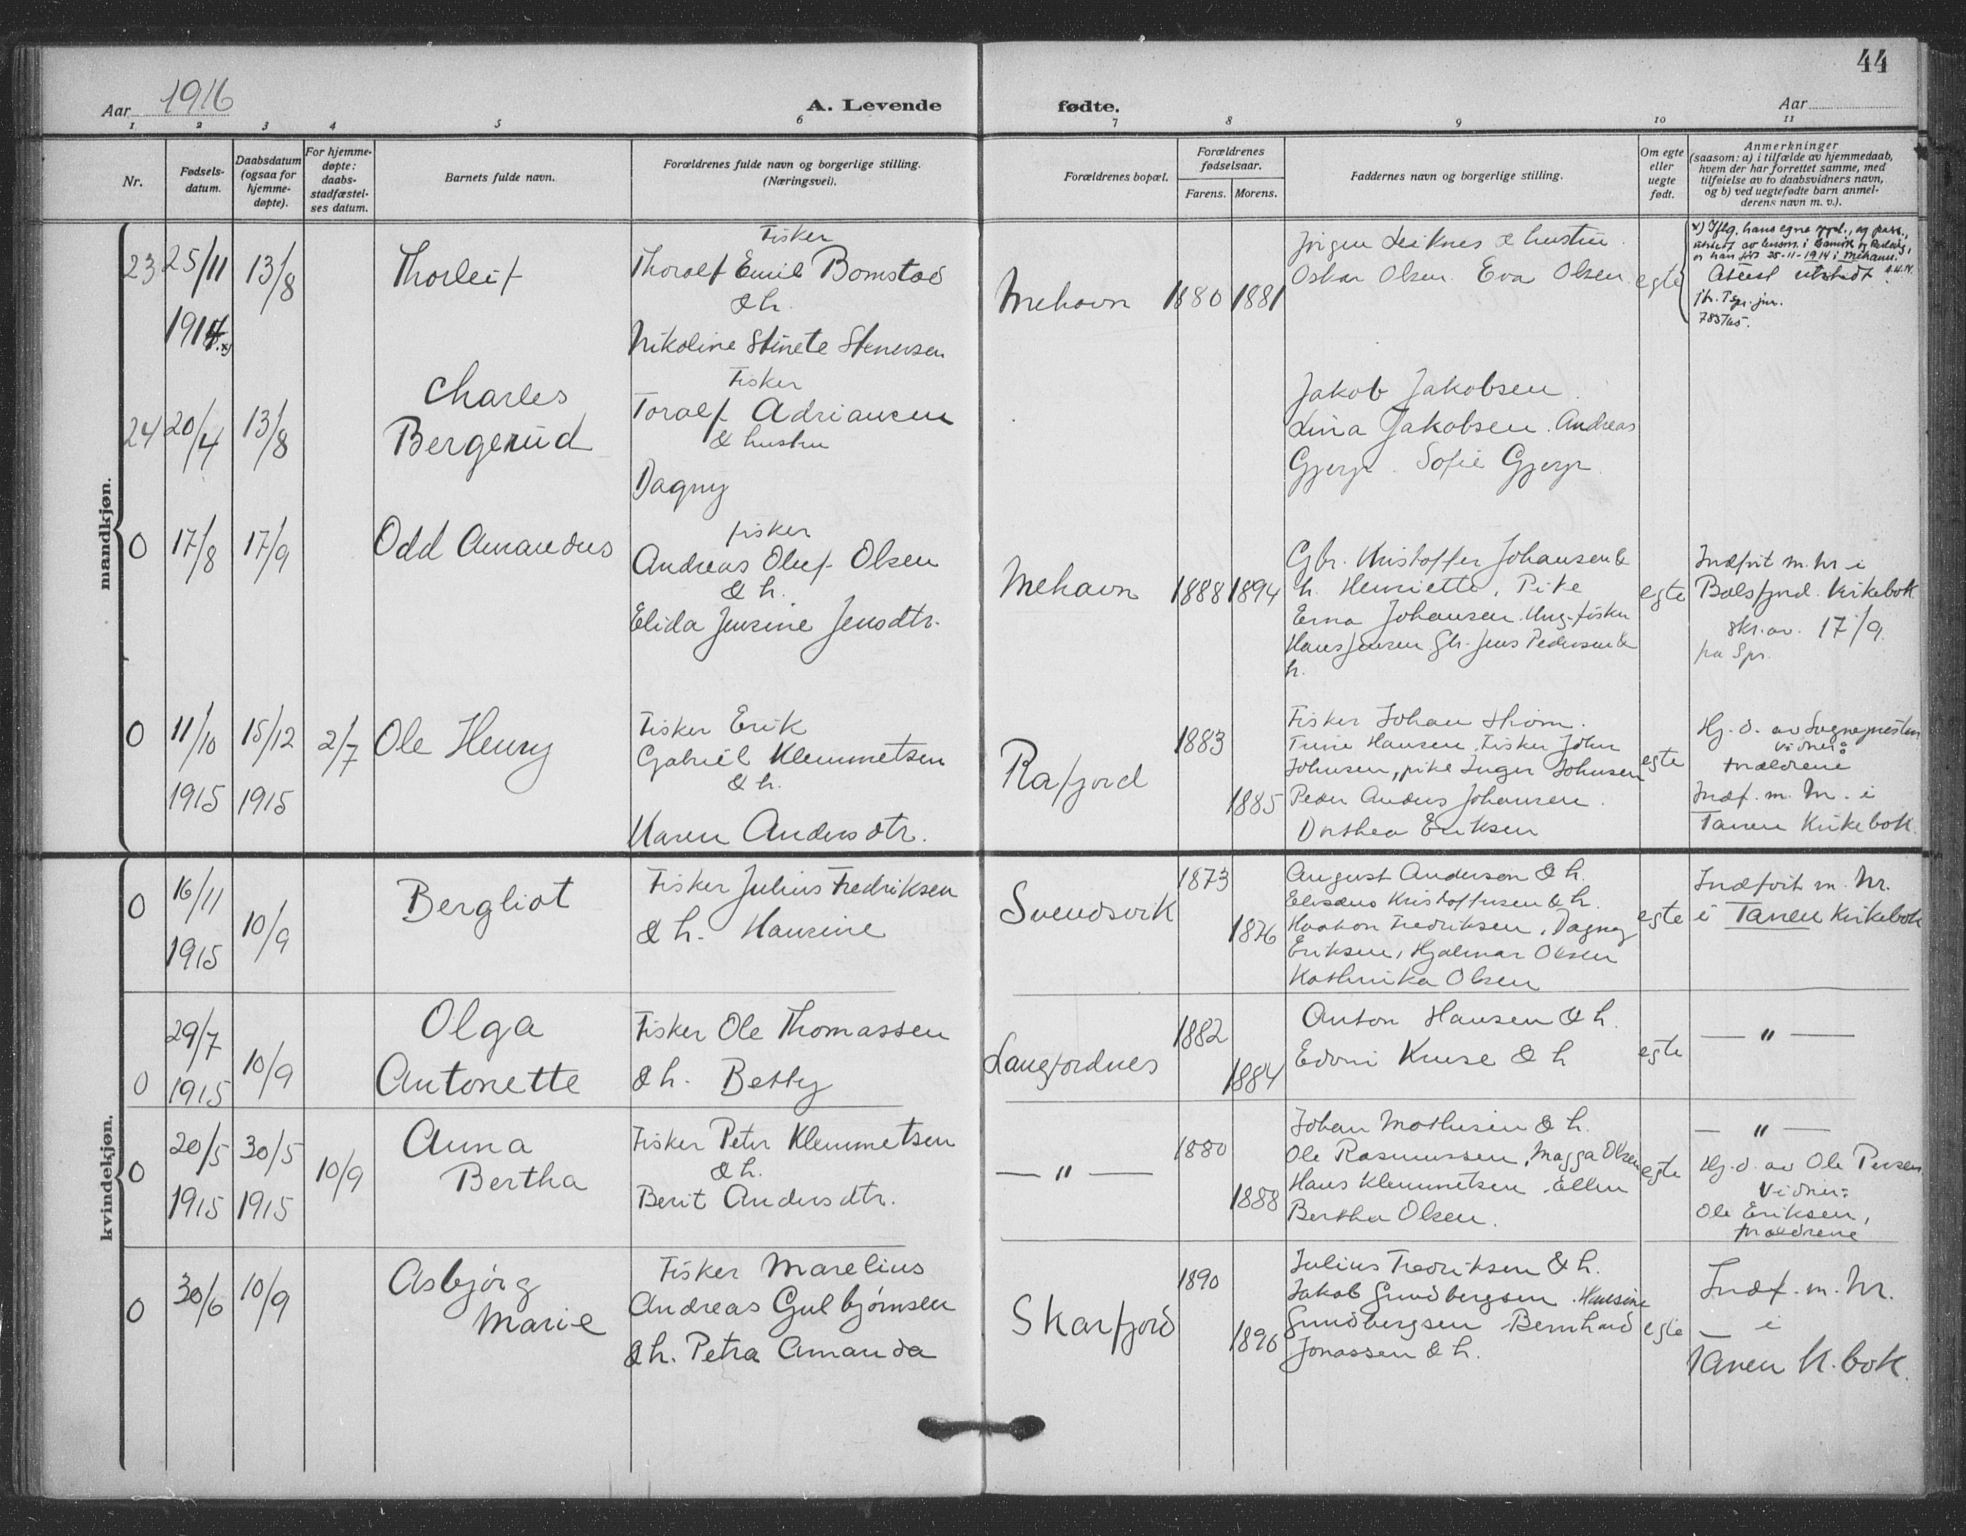 44
Aar 1916
A. Levende fødte.
Aar
1 2 3 4 5 6 7 8 9 10 11
Nr.
Fødsels-
datum.
Daabsdatum
(ogsaa for
hjemme-
døpte).
For hjemme-
døpte:
daabs-
stadfæstel-
ses datum.
Barnets fulde navn.
Forældrenes fulde navn og borgerlige stilling.
(Næringsvei).
Forældrenes bopæl.
Forældrenes
fødselsaar.
Farens. Morens.
Faddernes navn og borgerlige stilling.
Om egte
eller
uegte
født.
Anmerkninger
(saasom: a) i tilfælde av hjemmedaab,
hvem der har forrettet samme, med
tilføielse av to daabsvidners navn,
og b) ved uegtefødte barn anmel-
derens navn m. v.).
mandkjøn.
23 25/11 1914 x) 13/8
Thorleif
Fisker
Thoralf Emil Bomstad
& h.
Nikoline Stinete Stenersen
Mehavn 1880 1881
Jørgen Leiknes & hustru.
Oskar Olsen. Eva Olsen.
egte
x) Iflg. hans egne
er han født 25-11-1914 i Mehamn.
Attest utstedt
24 20/4 13/8
Charles
Bergerud
Fisker
Toralf Adriansen
& hustru
Dagny
Jakob Jakobsen.
Lina Jakobsen. Andreas
Sofie
0 17/8 17/9
Odd Amandus
Fisker
Andreas Oluf Olsen
& h.
Elida Jensine Jensdtr.
Mehavn 1888 1894
Gbr. Kristoffer Johansen &
h. Henriette, Pike
Erna Johansen. Ung. fisker
Hans Jensen Gbr. Jens Pedersen &
h.
egte
Indført m. Nr i
Balsfjord Kirkebok
skr. av. 17/9.
pa Spr.
0 11/10 1915 15/12 1915 2/7
Ole Henry
Fisker Erik
Gabriel Klemmetsen
& h.
Maren Andersdtr.
Rafjord 1883 1885
Fisker Johan Strøm.
Trine Hansen, Fisker John
Johnsen, pike Inger Johnsen
Peder Anders Johansen.
Dorthea Eriksen
egte
Hj. d. av Sognepresten
Vidner:
Forældrene
Indf. m. Nr. i
Tanen Kirkebok.
kvindekjøn.
0 16/11 1915 10/9
Bergliot
Fisker Julius Fredriksen
& h. Hansine
Svendsvik 1873 1876
August Anderson & h.
Kristoffersen & h.
Haakon Fredriksen, Dagny
Eriksen, Hjalmar Olsen
Kathrika Olsen
egte
Indført m. Nr.
i Tanen Kirkebok
0 29/7 1915 10/9
Olga
Antonette
Fisker Ole Thomassen
& h. Betty
Langfjordnes 1882 1884
Anton Hansen & h.
Edvin Kruse & h
egte
— " —
0 20/5 1915 30/5 1915 10/9
Anna
Bertha
Fisker Peter Klemmetsen
& h.
Berit Andersdtr.
— " — 1880 1888
Johan Mathisen & h.
Ole Rasmussen, Magga Olsen
Hans Klemmetsen. Ellen
Bertha Olsen.
egte
— " —
Hj. d. av Ole Persen
Vidner:
Ole Eriksen,
forældrene
0 30/6 10/9
Asbjørg
Marie
Fisker Marelius
Andreas Gulbjørnsen
& h. Petra Amanda
Skarfjord 1890 1896
Julius Fredriksen & h.
Jakob Gundbergsen. Hansine
Gundbergsen. Bernhard
Jonassen & h.
egte
Indf. m. Nr.
— i
Tanen K. bok.